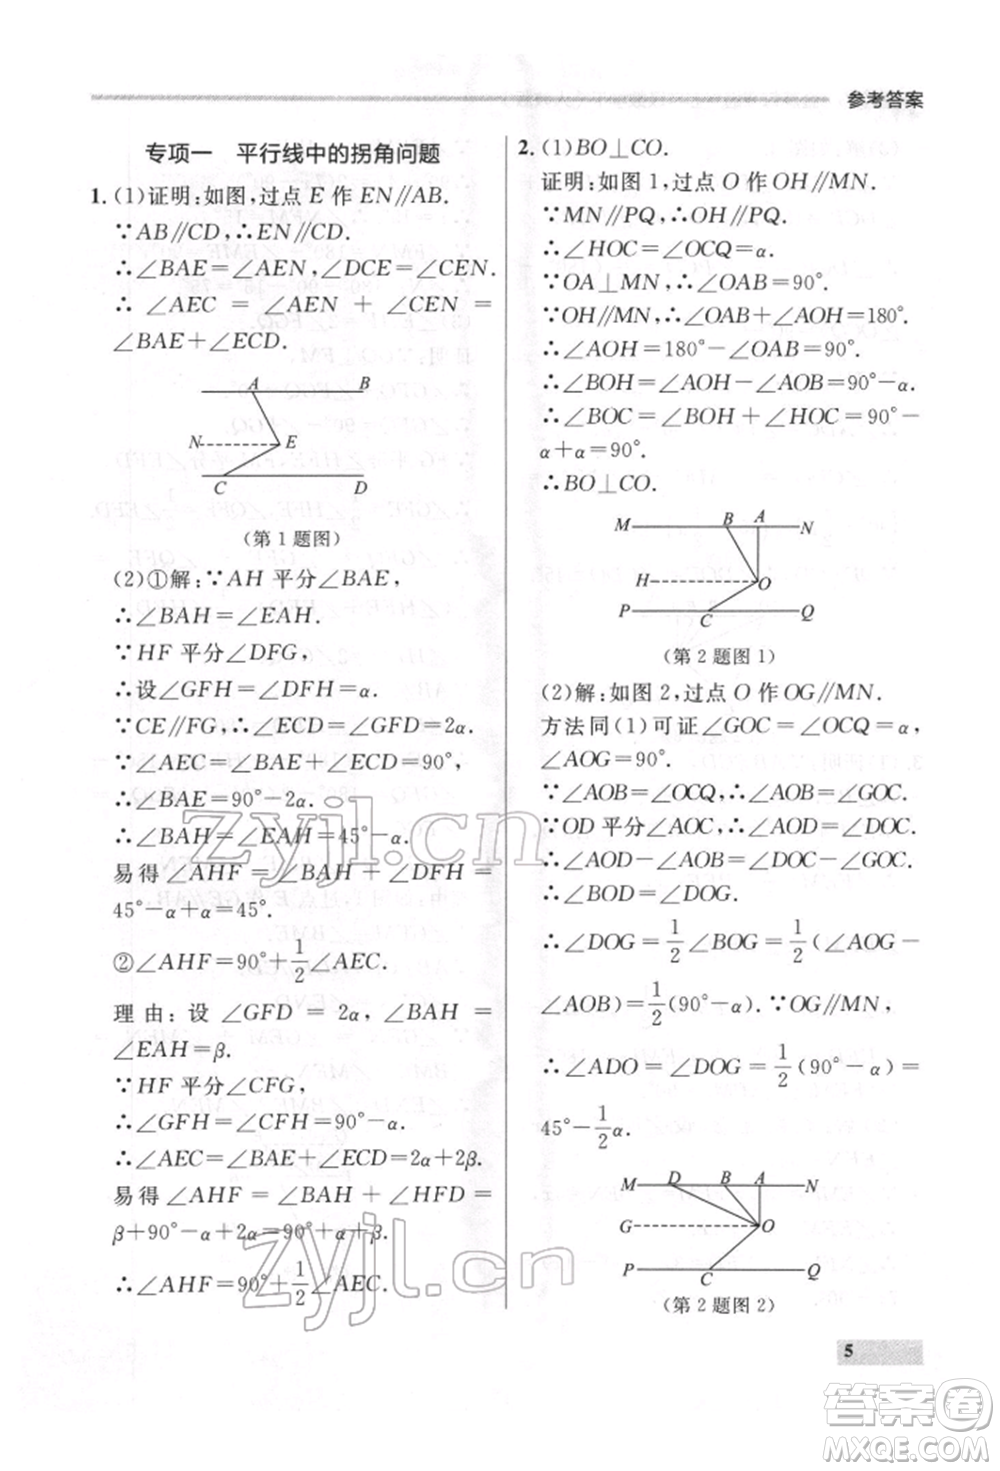 参考答案
专项一 平行线中的拐角问题
1. (1)证明:如图,过点 E 作 EN∥AB.
∵AB∥CD,∴EN∥CD.
∴∠BAE=∠AEN,∠DCE=∠CEN.
∴ ∠AEC = ∠AEN + ∠CEN =
∠BAE+∠ECD.
A B
N E
C D
(第 1 题图)
(2)①解:∵AH 平分∠BAE,
∴∠BAH=∠EAH.
∵HF 平分∠DFG,
∴设∠GFH=∠DFH=α.
∵CE∥FG,∴∠ECD=∠GFD=2α.
∵∠AEC=∠BAE+∠ECD=90°,
∴∠BAE=90°-2α.
∴∠BAH=∠EAH=45°-α.
易得∠AHF=∠BAH+∠DFH=
45°-α+α=45°.
②∠AHF=90°+1/2∠AEC.
理由:设 ∠GFD = 2α,∠BAH =
∠EAH=β.
∵HF 平分∠CFG,
∴∠GFH=∠CFH=90°-α.
∴∠AEC=∠BAE+∠ECD=2α+2β.
易得 ∠AHF = ∠BAH + ∠HFD=
β+90°-α+2α=90°+α+β.
∴∠AHF=90°+1/2∠AEC.
2. (1)BO⊥CO.
证明:如图 1,过点 O 作 OH∥MN.
∵MN∥PQ,∴OH∥PQ.
∴∠HOC=∠OCQ=α.
∵OA⊥MN,∴∠OAB=90°.
∵OH∥MN,∴∠OAB+∠AOH=180°.
∴∠AOH=180°-∠OAB=90°.
∴∠BOH=∠AOH-∠AOB=90°-α.
∴∠BOC=∠BOH+∠HOC=90°-
α+α=90°.
∴BO⊥CO.
M B A N
H O
P C Q
(第 2 题图 1)
(2)解:如图 2,过点 O 作 OG∥MN.
方法同(1)可证∠GOC=∠OCQ=α,
∠AOG=90°.
∵∠AOB=∠OCQ,∴∠AOB=∠GOC.
∵OD 平分∠AOC,∴∠AOD=∠DOC.
∴∠AOD-∠AOB=∠DOC-∠GOC.
∴∠BOD=∠DOG.
∴∠DOG=1/2∠BOG=1/2(∠AOG-
∠AOB)=1/2(90°-α).∵OG∥MN,
∴∠ADO=∠DOG=1/2(90°-α)=
45°-1/2α.
M D B A N
G O
P C Q
(第 2 题图 2)
5
zyjl.cn
zyjl.cn
答案圈
MXQE.COM